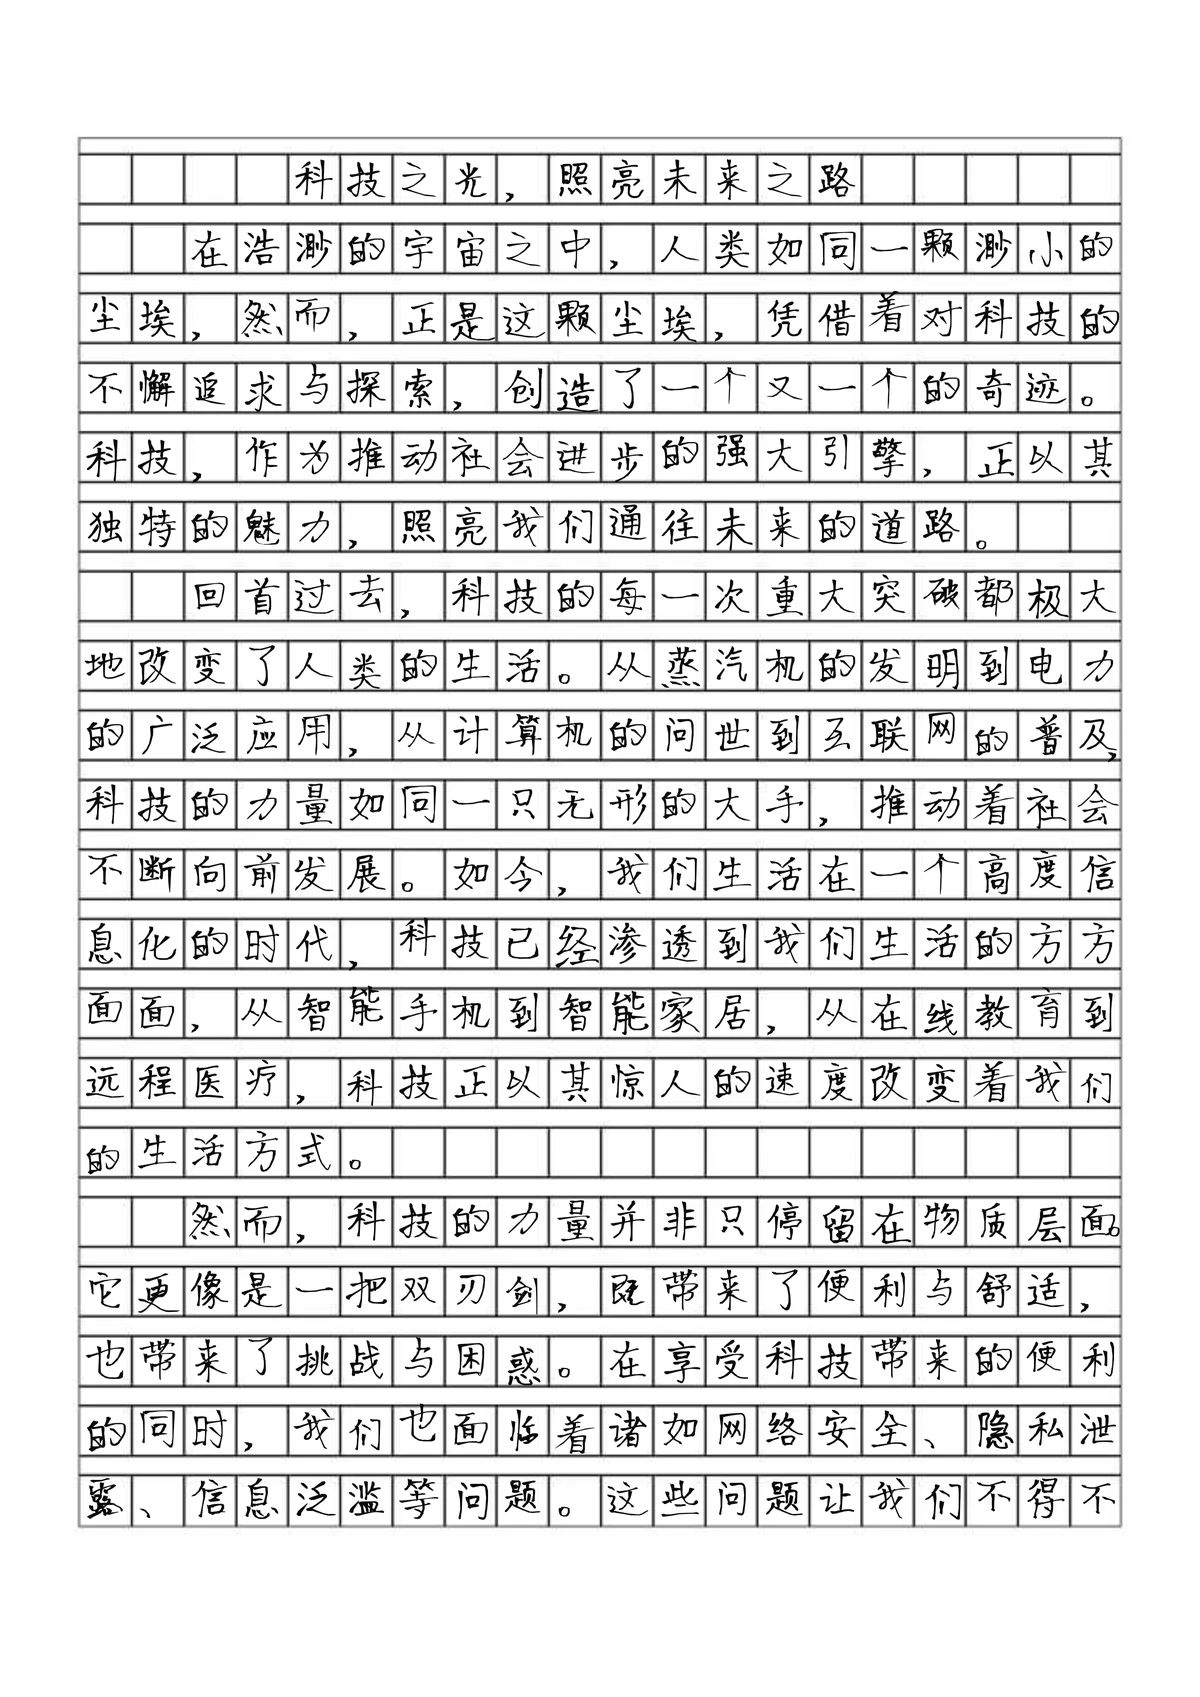 科技之光，照亮未来之路
在浩渺的宇宙之中，人类如同一颗渺小的
尘埃，然而，正是这颗尘埃，凭借着对科技的
不懈追求与探索，创造了一个又一个的奇迹。
科技，作为推动社会进步的强大引擎，正以其
独特的魅力，照亮我们通往未来的道路。
回首过去，科技的每一次重大突破都极大
地改变了人类的生活。从蒸汽机的发明到电力
的广泛应用，从计算机的问世到互联网的普及，
科技的力量如同一只无形的大手，推动着社会
不断向前发展。如今，我们生活在一个高度信
息化的时代，科技已经渗透到我们生活的方方
面面，从智能手机到智能家居，从在线教育到
远程医疗，科技正以其惊人的速度改变着我们
的生活方式。
然而，科技的力量并非只停留在物质层面。
它更像是一把双刃剑，既带来了便利与舒适，
也带来了挑战与困惑。在享受科技带来的便利
的同时，我们也面临着诸如网络安全、隐私泄
露、信息泛滥等问题。这些问题让我们不得不